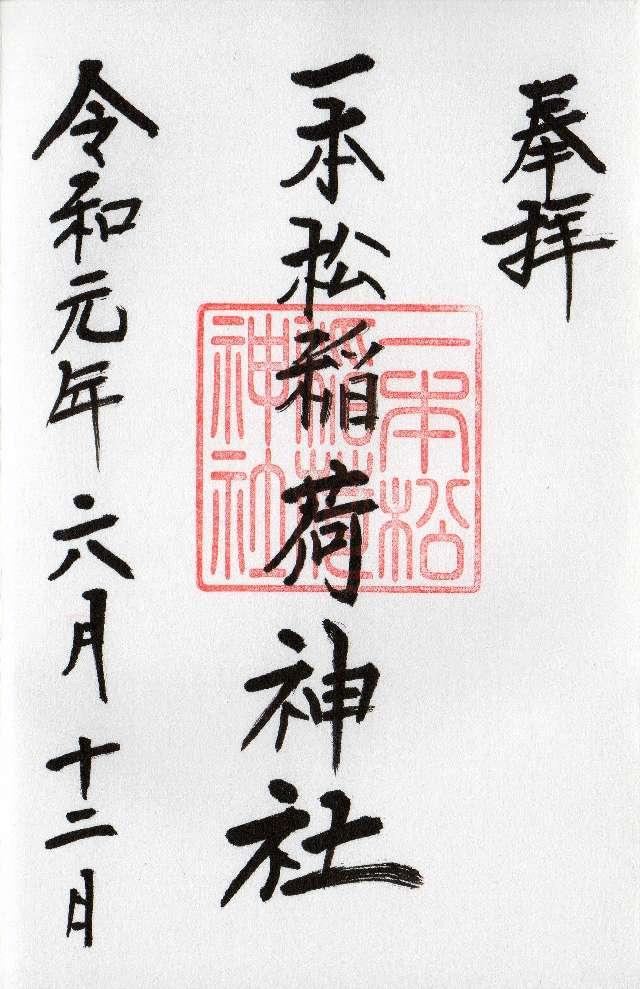 奉拝
一本松稲荷神社
一本松
稲荷
神社
令和元年六月十二日